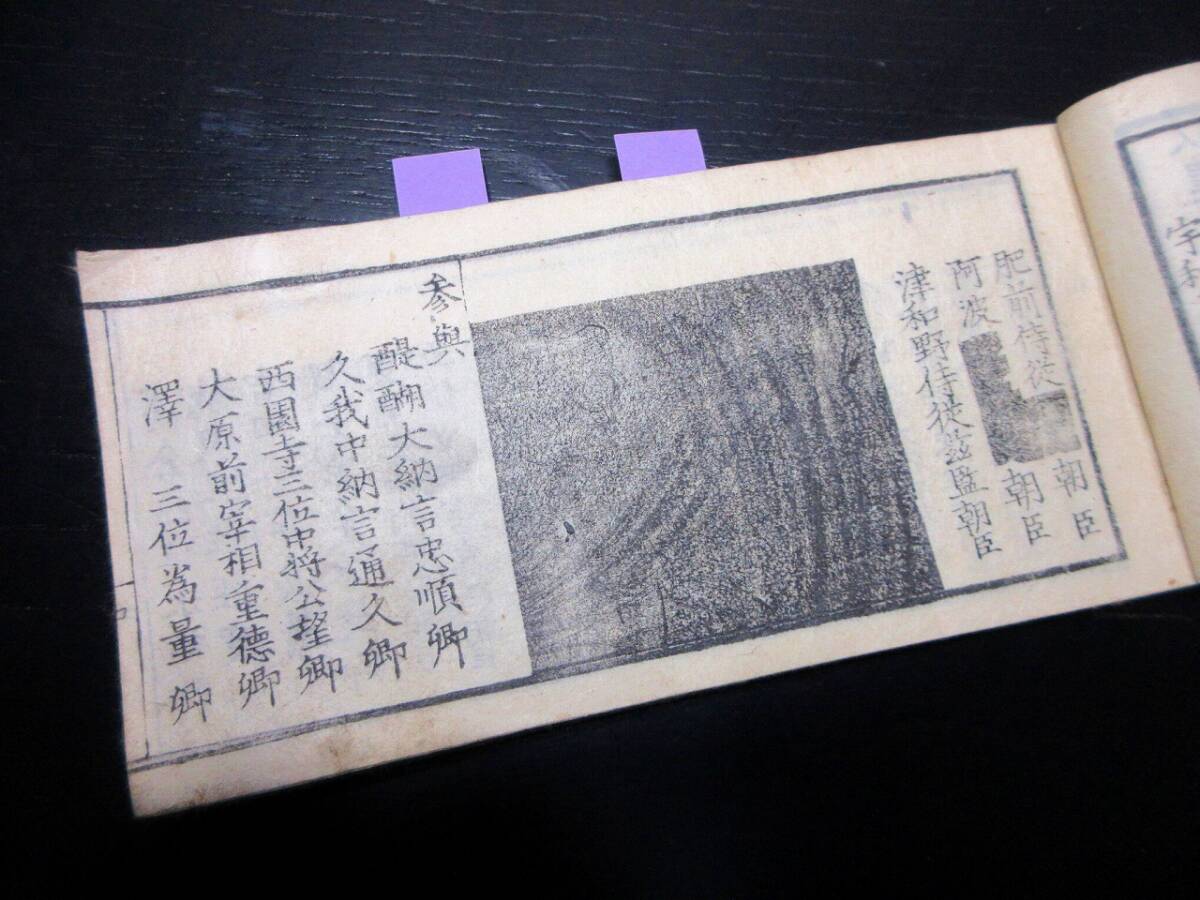 肥前侍従 朝臣
阿波 朝臣
津和野侍従茲監朝臣
参與
醍醐大納言忠順卿
久我中納言通久卿
西園寺三位中将公望卿
大原前宰相重徳卿
澤 三位為量卿